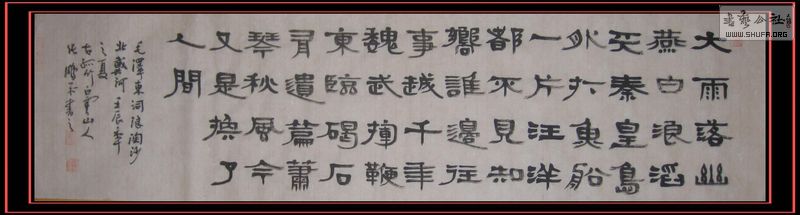 大雨落幽
燕白浪滔
天秦皇島
外打魚船
一片汪洋
都不見知
嚮誰邊往
事越千年
魏武揮鞭
東臨碣石
有遺篇蕭
瑟秋風今
又是換了
人間
毛澤東詞浪淘沙
北戴河 壬辰年
之夏
古孤竹白雲山人
書之
書藝公社
WWW.SHUFA.ORG